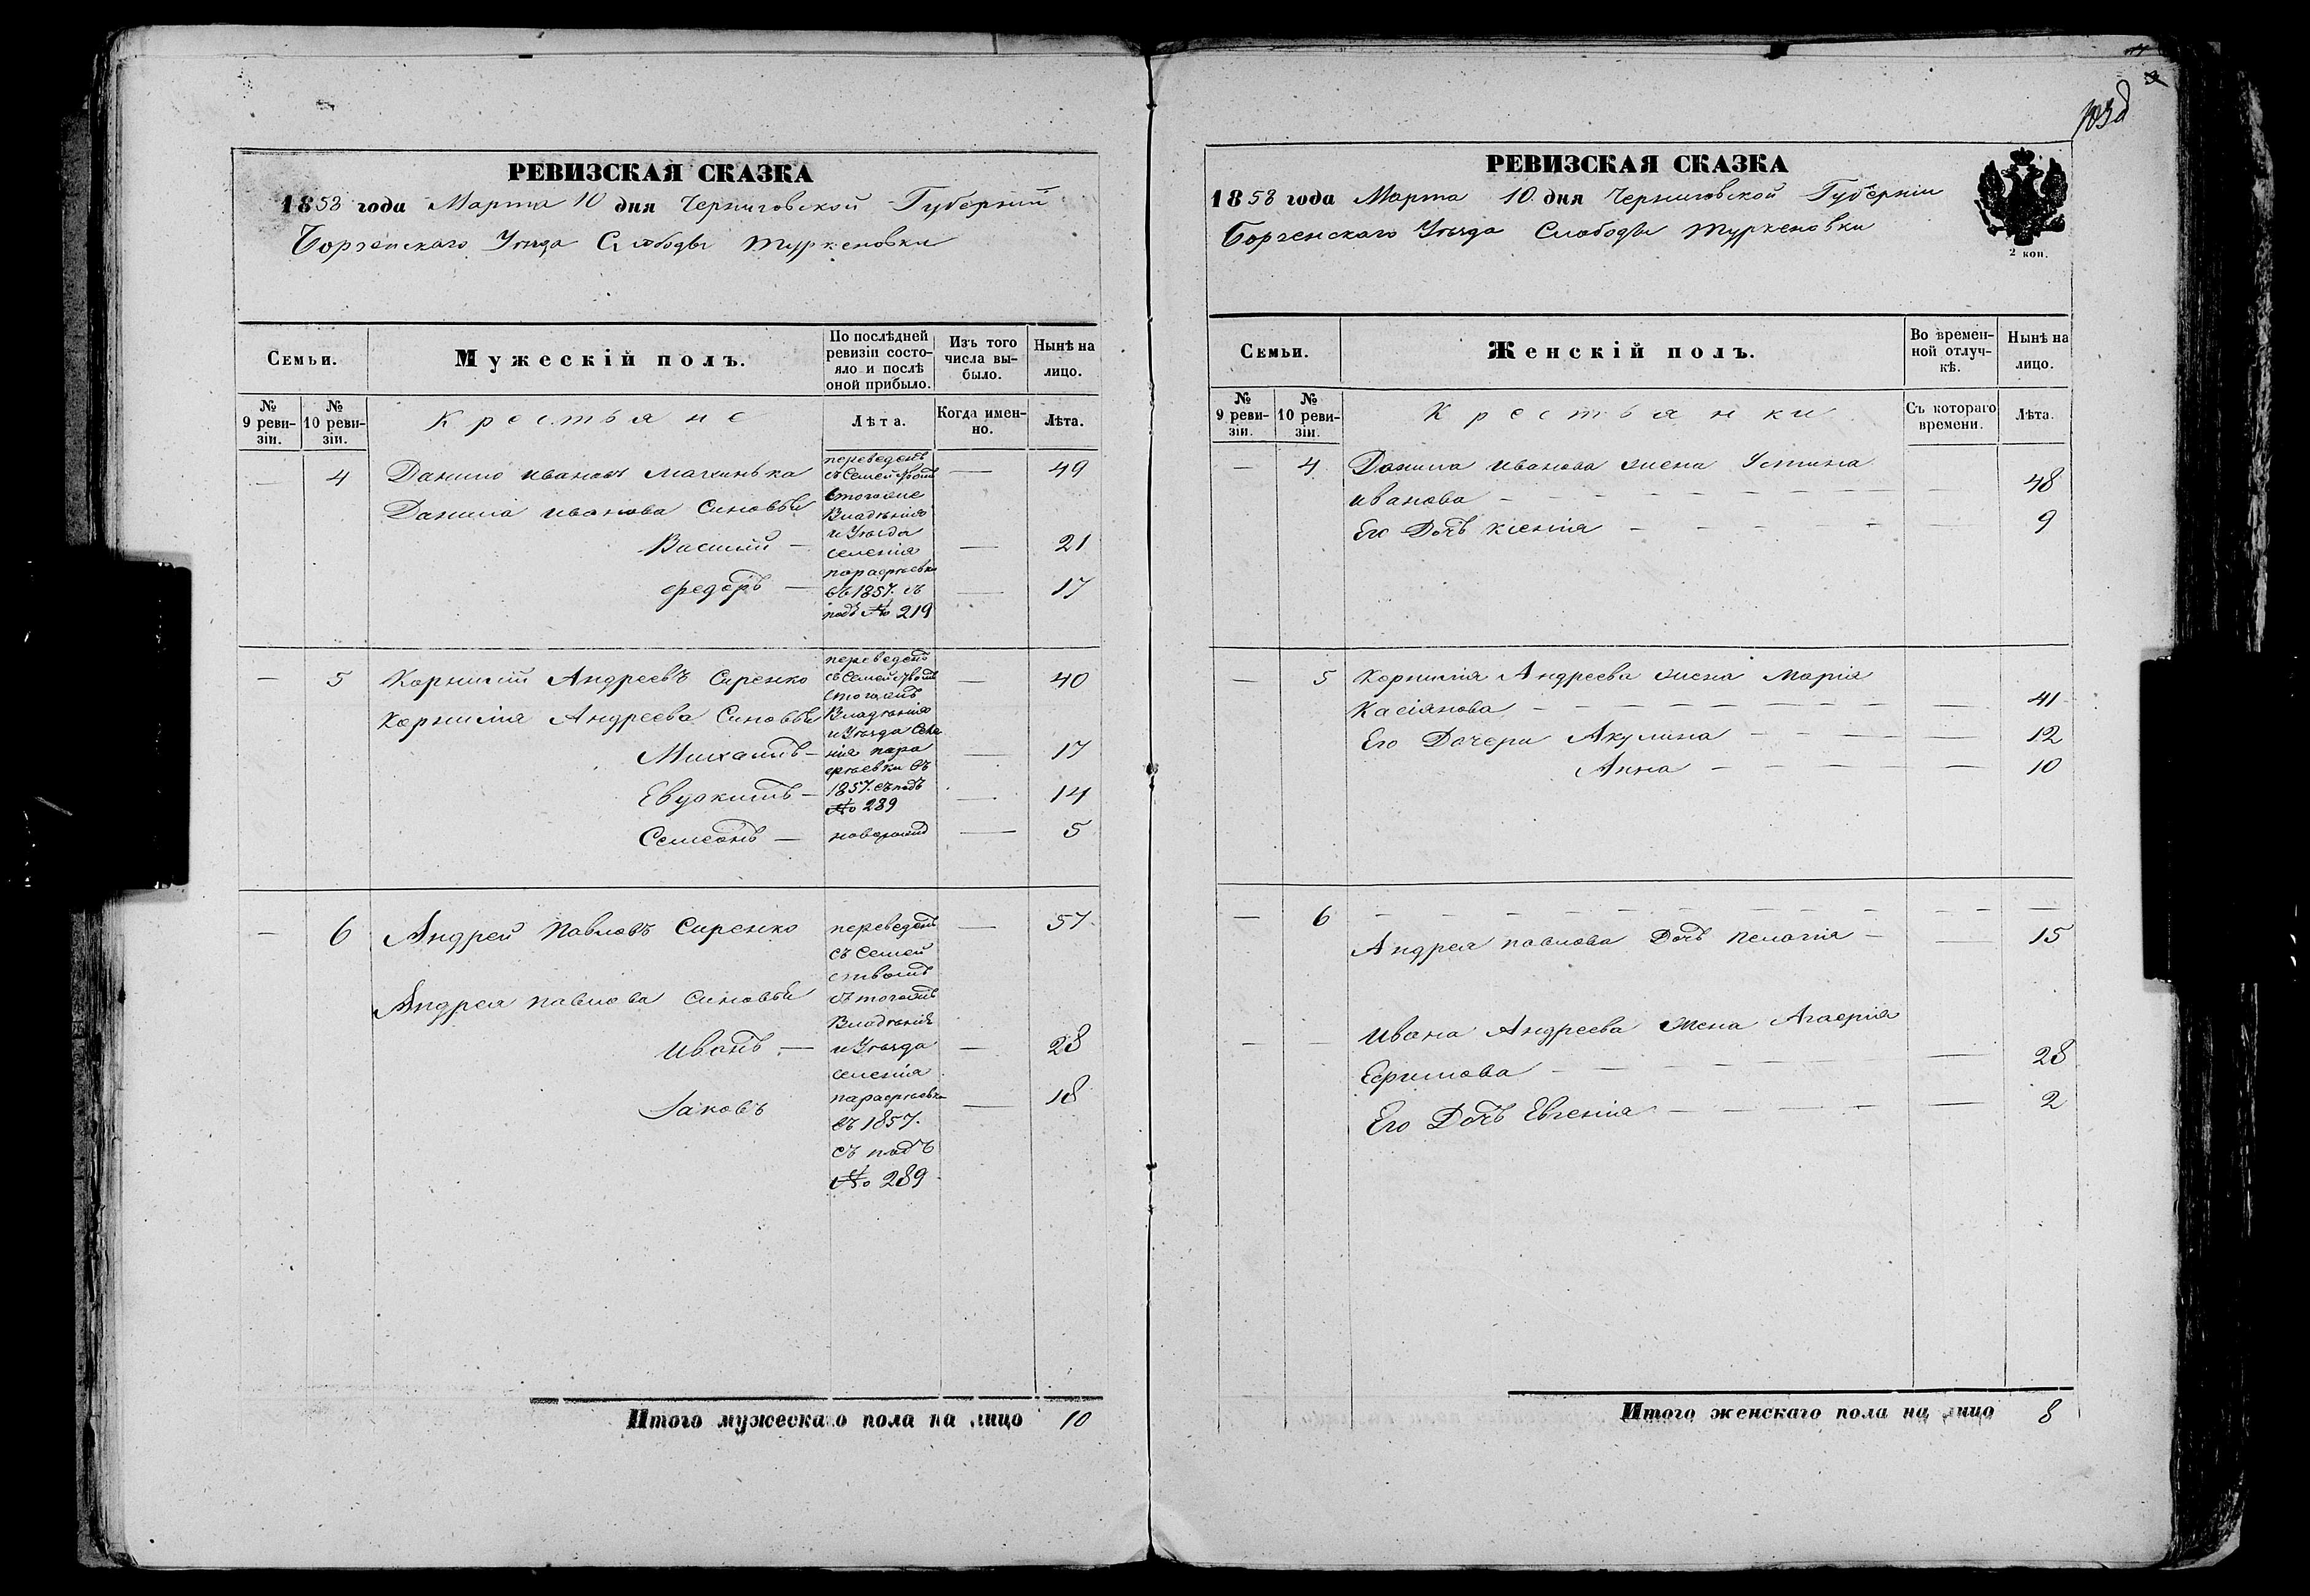 103д
РЕВИЗСКАЯ СКАЗКА
1858 года Марта 10 дня Черниговской Губерніи
Борзенскаго Уѣзда Слободы Туркеновки
Семьи.
Мужескій полъ.
По послѣдней ревизіи состояло и послѣ оной прибыло.
Изъ того числа выбыло.
Нынѣ на лицо.
№ 9 ревизіи.
№ 10 ревизіи.
Крестьяне
Лѣта.
Когда именно.
Лѣта.
— 4 Данило Ивановъ Махинька — 49
Данила Иванова Сыновьи
Василій — — 21
Федоръ — — 17
переведенъ
съ Семействомъ
стогоже
Владѣнія
и Уѣзда
селенія
парафіевки
въ 1857. съ
подъ № 219
— 5 Корнилій Андреевъ Сиренко — 40
Корнилія Андреева Сыновьи
Михаилъ — — 17
Евдокимъ — — 14
Семенъ — новорож — 5
переведенъ
съ Семействомъ
стогожъ
Владѣнія
и Уѣзда Селе
нія пара
фіевки въ
1857. съ подъ
№ 289
— 6 Андрей Павловъ Сиренко — 57
Андрея Павлова Сыновьи
Иванъ — — 28
Іаковъ — 18
переведенъ
съ Семей
ствомъ
стогожъ
Владѣнія
и Уѣзда
селенія
парафіевки
въ 1857.
съ подъ
№ 289
Итого мужескаго пола на лицо 10
РЕВИЗСКАЯ СКАЗКА
1858 года Марта 10 дня Черниговской Губерніи
Борзенскаго Уѣзда Слободы Туркеновки
2 коп.
Семьи.
Женскій полъ.
Во временной отлучкѣ.
Нынѣ на лицо.
№ 9 ревизіи.
№ 10 ревизіи.
Крестьянки
Съ котораго времени.
Лѣта.
— 4 Данила Иванова жена Устина
Иванова — 48
Его Дочь Ксенія — 9
— 5 Корнилія Андреева жена Марія
Касіянова — 41
Его Дочери Акулина — 12
Анна — 10
— 6
Андрея Павлова Дочь Пелагія — 15
— — Ивана Андреева жена Агафія
Ефимова — 28
Его Дочь Евгенія — 2
Итого женскаго пола на лицо 8